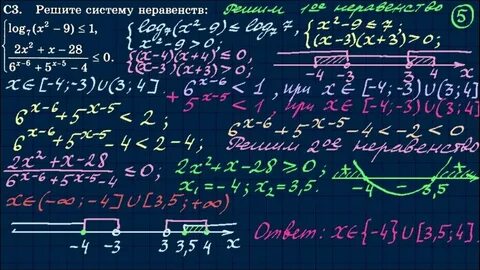 C3. Решите систему неравенств:
{ log₇(x² − 9) ≤ 1,
{ (2x² + x − 28)/(6^(x−6) + 5^(x−5) − 4) ≤ 0.
Решим 1ое неравенство
5
{ log₇(x²−9) ≤ log₇7,
{ x²−9 > 0;
{ x²−9 ≤ 7;
{ (x−3)(x+3) > 0;
{ (x−4)(x+4) ≤ 0,
{ (x−3)(x+3) > 0;
−4 −3 3 4 x
x∈[−4;−3)∪(3;4]
+ 6^(x−6) < 1, при x∈[−4;−3)∪(3;4]
5^(x−5) < 1, при x∈[−4;−3)∪(3;4]
6^(x−6) + 5^(x−5) < 2;
6^(x−6) + 5^(x−5) − 4 < −2 < 0
6^(x−6) + 5^(x−5) − 4 < 2 − 4
Решим 2ое неравенство
(2x² + x − 28)/(6^(x−6) + 5^(x−5) − 4) ≤ 0;
2x² + x − 28 ≥ 0;
x₁ = −4; x₂ = 3,5.
+ − + −4 3,5 x
x∈(−∞;−4]∪[3,5;+∞)
−4 −3 3 3,5 4 x
Ответ: x∈{−4}∪[3,5;4].